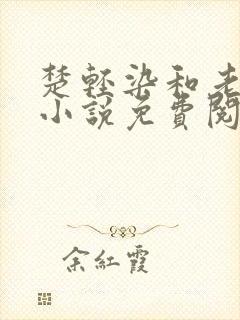 楚轻染和老
小说免費閱
余紅霞